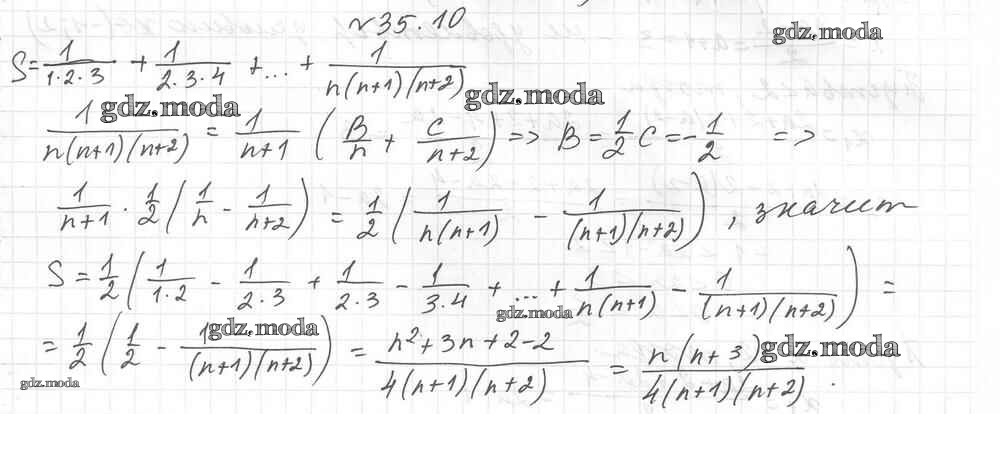 №35.10
gdz.moda
S = 1/(1·2·3) + 1/(2·3·4) + ... + 1/(n(n+1)(n+2))
gdz.moda gdz.moda
1/(n(n+1)(n+2)) = 1/(n+1) (B/n + C/(n+2)) => B = 1/2 C = -1/2 =>
1/(n+1) · 1/2 (1/n - 1/(n+2)) = 1/2 (1/(n(n+1)) - 1/((n+1)(n+2))), значит
S = 1/2 (1/(1·2) - 1/(2·3) + 1/(2·3) - 1/(3·4) + ... + 1/(n(n+1)) - 1/((n+1)(n+2))) =
gdz.moda gdz.moda
= 1/2 (1/2 - 1/((n+1)(n+2))) = (n²+3n+2-2)/(4(n+1)(n+2)) = n(n+3)/(4(n+1)(n+2)).
gdz.moda
gdz.moda